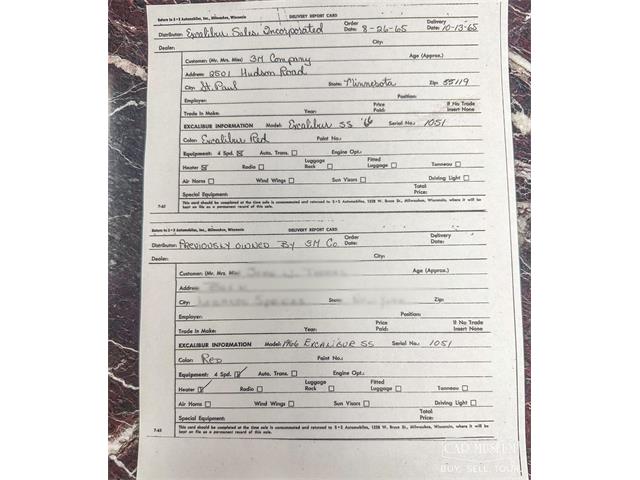 Return to S•S Automobiles, Inc., Milwaukee, Wisconsin DELIVERY REPORT CARD Order Date: 8-26-65 Delivery Date: 10-13-65
Distributor: Excalibur Sales Incorporated
Dealer: City:
Customer: (Mr. Mrs. Miss) 3M Company Age (Approx.)
Address: 2501 Hudson Road
City: St. Paul State: Minnesota Zip: 55119
Employer: Position:
Trade In Make: Year: Price Paid: If No Trade Insert None
EXCALIBUR INFORMATION Model: Excalibur SS '66 Serial No.: 1051
Color: Excalibur Red Paint No.:
Equipment: 4 Spd. Auto. Trans. Engine Opt.:
Heater Radio Luggage Rack Fitted Luggage Tonneau
Air Horns Wind Wings Sun Visors Driving Light
Special Equipment: Total Price:
7-65 This card should be completed at the time sale is consummated and returned to S•S Automobiles, 1328 W. Bruce St., Milwaukee, Wisconsin, where it will be
kept on file as a permanent record of this sale.
Return to S•S Automobiles, Inc., Milwaukee, Wisconsin DELIVERY REPORT CARD Order Date: Delivery Date:
Distributor: PREVIOUSLY OWNED BY 3M Co
Dealer: City:
Customer: (Mr. Mrs. Miss) Age (Approx.)
Address:
City: State: Zip:
Employer: Position:
Trade In Make: Year: Price Paid: If No Trade Insert None
EXCALIBUR INFORMATION Model: 1966 EXCALIBUR SS Serial No.: 1051
Color: RED Paint No.:
Equipment: 4 Spd. Auto. Trans. Engine Opt.:
Heater Radio Luggage Rack Fitted Luggage Tonneau
Air Horns Wind Wings Sun Visors Driving Light
Special Equipment: Total Price:
7-65 This card should be completed at the time sale is consummated and returned to S•S Automobiles, 1328 W. Bruce St., Milwaukee, Wisconsin, where it will be
kept on file as a permanent record of this sale.
CAR MUSEUM
BUY. SELL. TOUR.